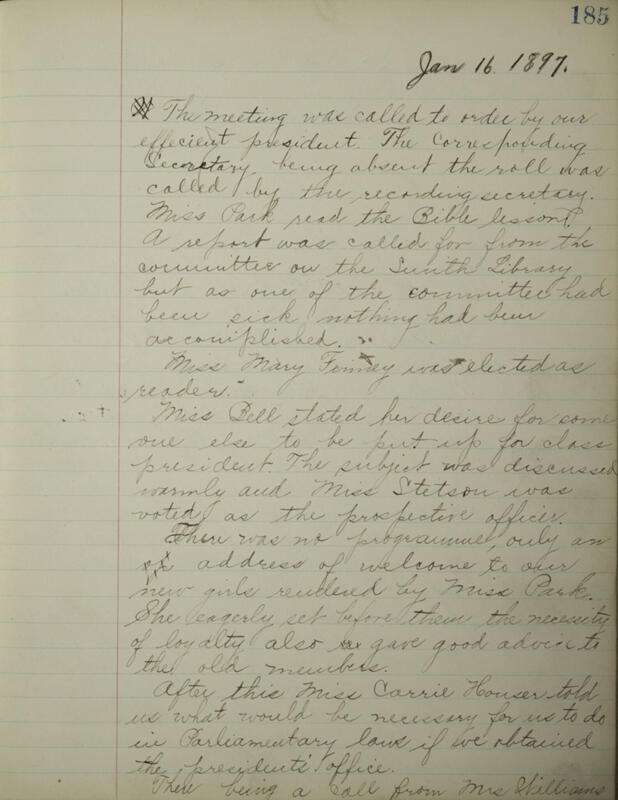 185
Jan 16. 1897.
The meeting was called to order by our
effecient president. The Corresponding
Secretary being absent the roll was
called by the recording secretary.
Miss Park read the Bible lesson.
A report was called for from the
committee on the Smith Library
but as one of the committee had
been sick nothing had been
accomplished.
Miss Mary Finney was elected as
reader.
Miss Bell stated her desire for some
one else to be put up for class
president. The subject was discussed
warmly and Miss Stetson was
voted as the prospective officer.
There was no programme, only an
address of welcome to our
new girls rendered by Miss Park.
She eagerly set before them the necessity
of loyalty also gave good advice to
the old members.
After this Miss Carrie Houser told
us what would be necessary for us to do
in Parliamentary laws if we obtained
the presidents' office.
There being a call from Mrs Williams